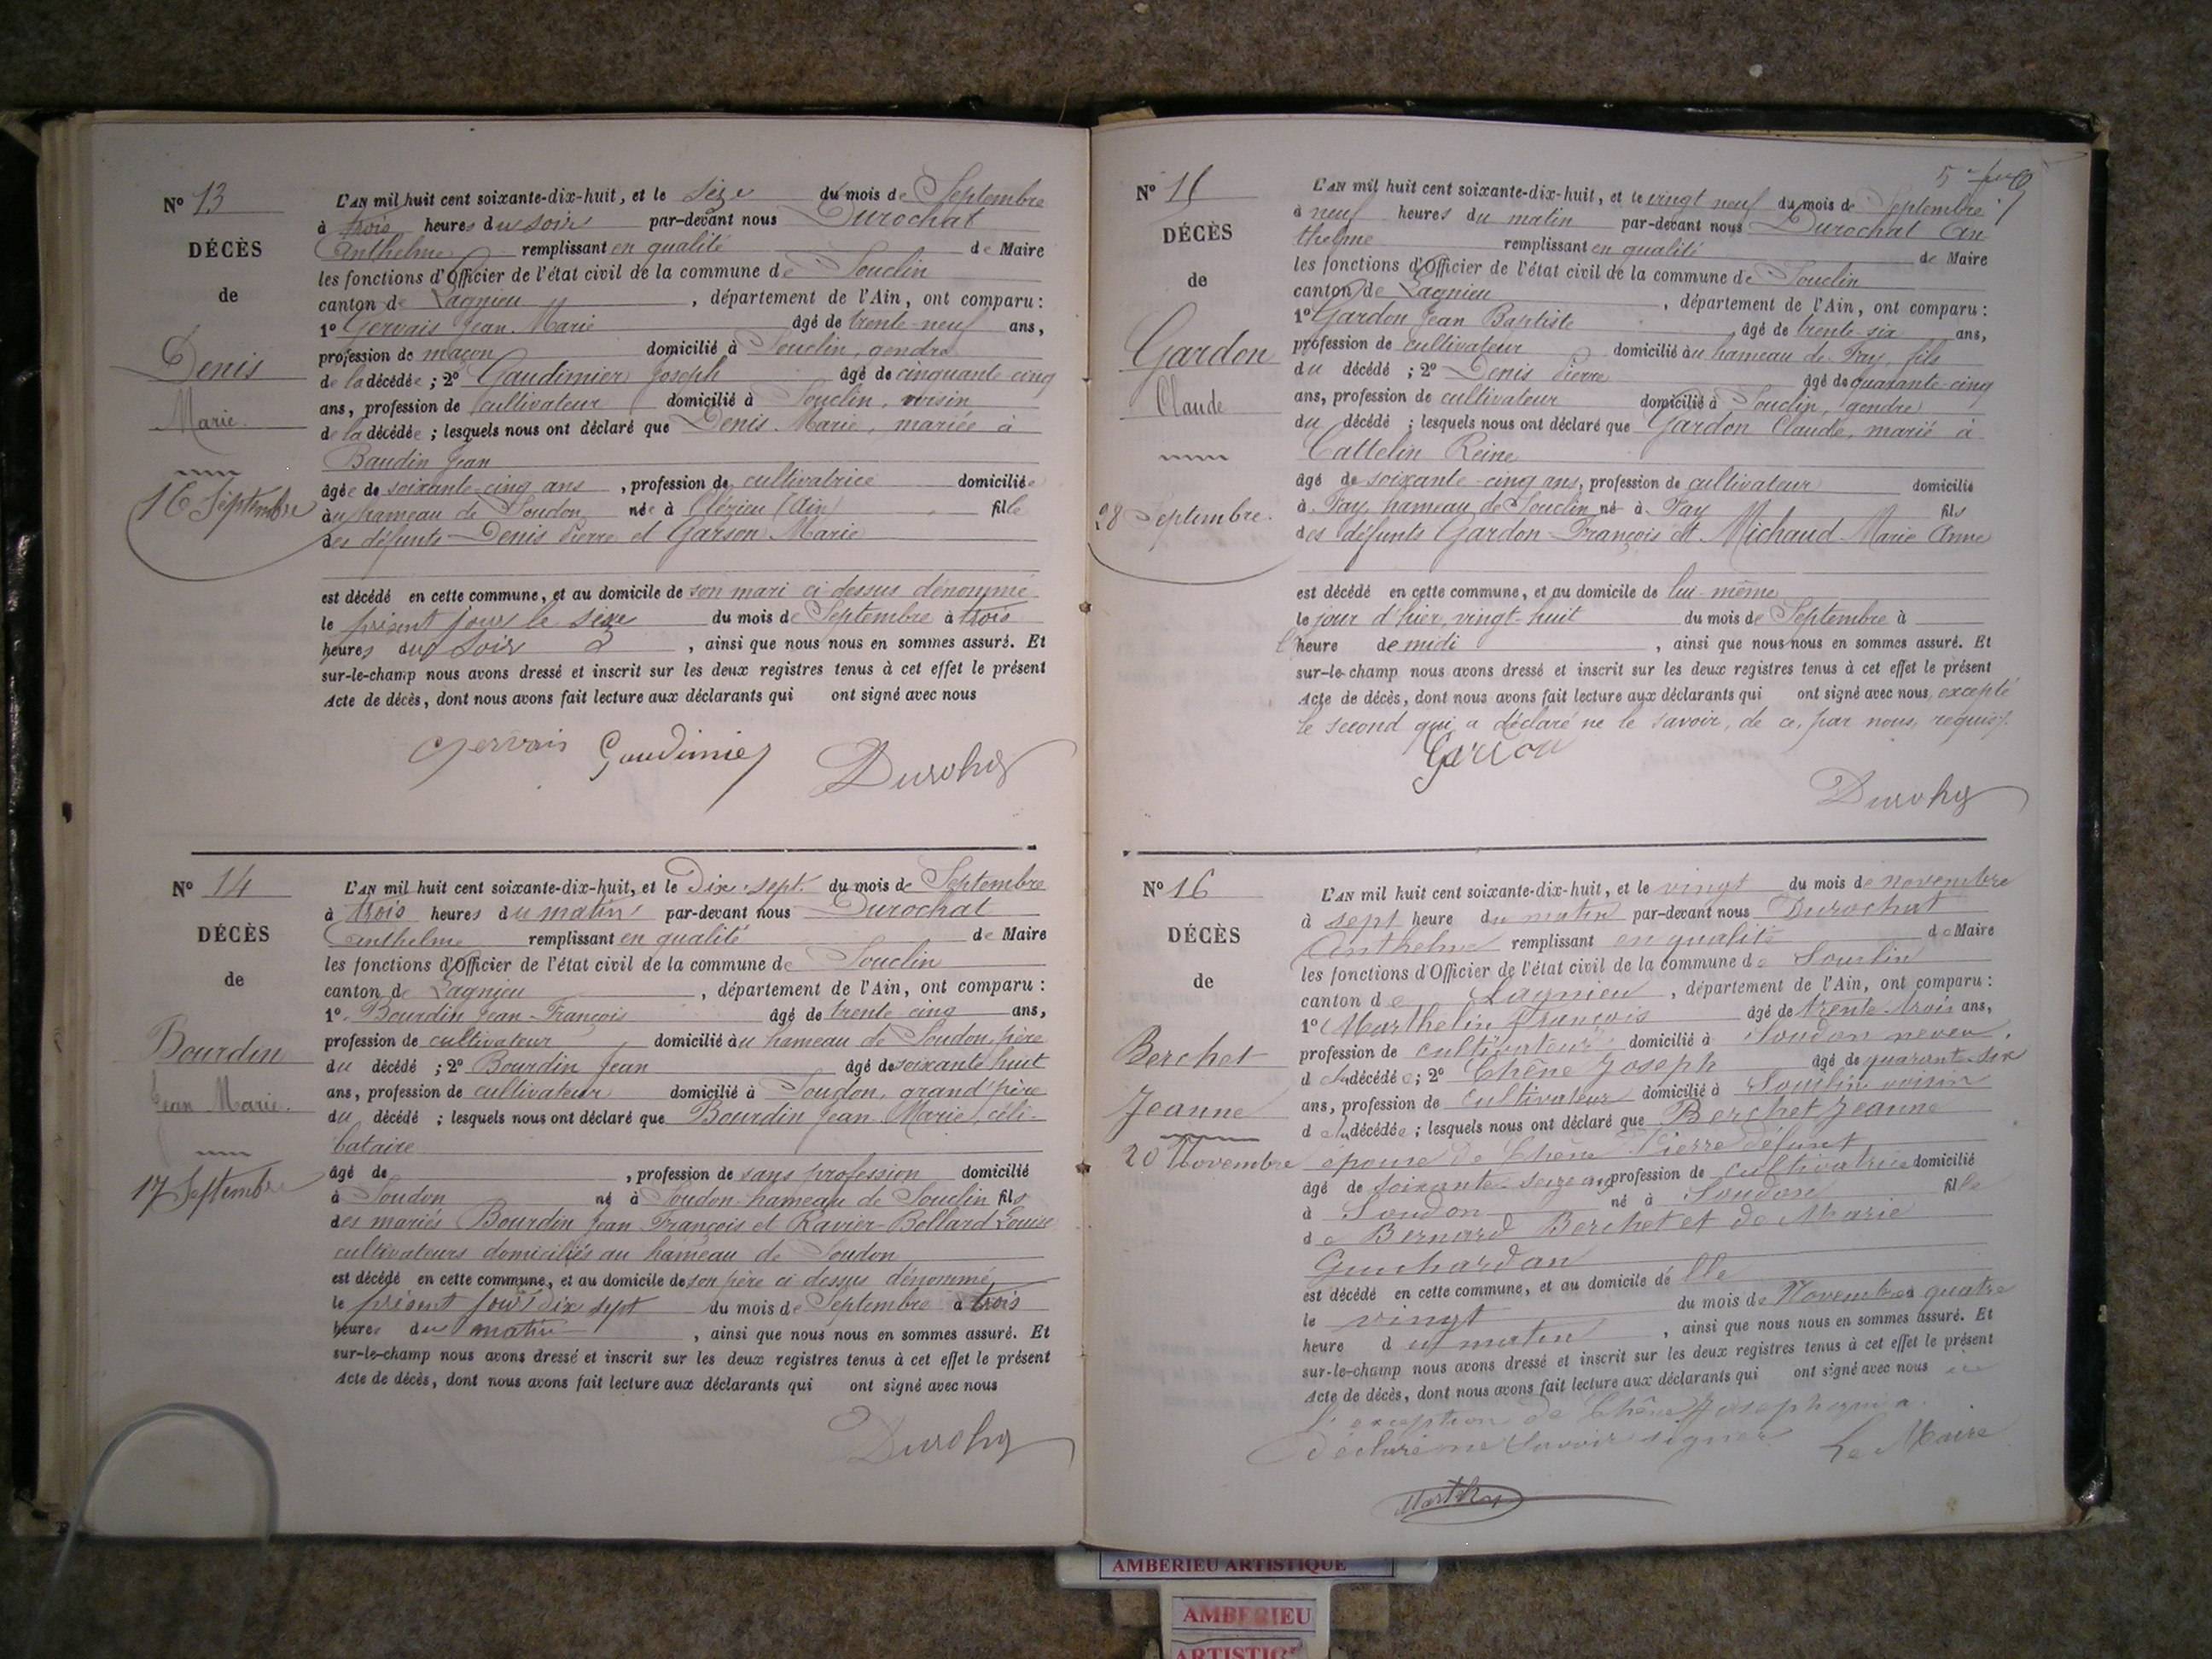 N° 13
DÉCÈS
de
Denis
Marie
16 Septembre
L'AN mil huit cent soixante-dix-huit, et le seize du mois de Septembre
à trois heures du soir par-devant nous Durochat
Anthelme remplissant en qualité de Maire
les fonctions d'Officier de l'état civil de la commune de Souclin
canton de Lagnieu, département de l'Ain, ont comparu :
1° Gervais Jean Marie âgé de trente-neuf ans,
profession de maçon domicilié à Souclin, gendre
de la décédée ; 2° Gaudimier Joseph âgé de cinquante cinq
ans, profession de cultivateur domicilié à Souclin, voisin
de la décédée ; lesquels nous ont déclaré que Denis Marie, mariée à
Baudin Jean
âgée de soixante-cinq ans, profession de cultivatrice domiciliée
au hameau de Soudon née à Clézieu (Ain) fille
des défunts Denis Pierre et Garson Marie
est décédé en cette commune, et au domicile de son mari ci-dessus dénommé
le présent jour le seize du mois de Septembre à trois
heures du soir, ainsi que nous nous en sommes assuré. Et
sur-le-champ nous avons dressé et inscrit sur les deux registres tenus à cet effet le présent
Acte de décès, dont nous avons fait lecture aux déclarants qui ont signé avec nous
Gervais Gaudimier
N° 14
DÉCÈS
de
Bourdin
Jean Marie.
17 Septembre
L'AN mil huit cent soixante-dix-huit, et le Dix-sept du mois de Septembre
à trois heures du matin par-devant nous Durochat
Anthelme remplissant en qualité de Maire
les fonctions d'Officier de l'état civil de la commune de Souclin
canton de Lagnieu, département de l'Ain, ont comparu :
1° Bourdin Jean-François âgé de trente cinq ans,
profession de cultivateur domicilié au hameau de Soudon, père
du décédé ; 2° Bourdin Jean âgé de soixante huit
ans, profession de cultivateur domicilié à Soudon, grand'père
du décédé ; lesquels nous ont déclaré que Bourdin Jean-Marie, céli-
bataire
âgé de , profession de sans profession domicilié
à Soudon né à Soudon hameau de Souclin fils
des mariés Bourdin Jean François et Ravier-Bollard Louise
cultivateurs domiciliés au hameau de Soudon
est décédé en cette commune, et au domicile de son père ci-dessus dénommé
le présent jour dix sept du mois de Septembre à trois
heures du matin, ainsi que nous nous en sommes assuré. Et
sur-le-champ nous avons dressé et inscrit sur les deux registres tenus à cet effet le présent
Acte de décès, dont nous avons fait lecture aux déclarants qui ont signé avec nous
N° 15
DÉCÈS
de
Gardon
Claude
28 Septembre.
L'AN mil huit cent soixante-dix-huit, et le vingt neuf du mois de Septembre
à neuf heures du matin par-devant nous Durochat An-
thelme remplissant en qualité de Maire
les fonctions d'Officier de l'état civil de la commune de Souclin
canton de Lagnieu, département de l'Ain, ont comparu :
1° Gardon Jean Baptiste, âgé de trente-six ans,
profession de cultivateur domicilié au hameau de Fay, fils
du décédé ; 2° Denis Pierre âgé de quarante-cinq
ans, profession de cultivateur domicilié à Souclin, gendre
du décédé ; lesquels nous ont déclaré que Gardon Claude, marié à
Cattelin Reine
âgé de soixante-cinq ans, profession de cultivateur domicilié
à Fay, hameau de Souclin né à Fay fils
des défunts Gardon François et Michaud Marie Anne
est décédé en cette commune, et au domicile de lui-même
le jour d'hier, vingt-huit du mois de Septembre à
l'heure de midi, ainsi que nous nous en sommes assuré. Et
sur-le-champ nous avons dressé et inscrit sur les deux registres tenus à cet effet le présent
Acte de décès, dont nous avons fait lecture aux déclarants qui ont signé avec nous, excepté
le second qui a déclaré ne le savoir, de ce, par nous, requis.
N° 16
DÉCÈS
de
Berchet
Jeanne
20 Novembre
L'AN mil huit cent soixante-dix-huit, et le vingt du mois de novembre
à sept heure du matin par-devant nous Durochat
Anthelme remplissant en qualité de Maire
les fonctions d'Officier de l'état civil de la commune de Souclin
canton de Lagnieu, département de l'Ain, ont comparu :
1° Marthelin François âgé de trente-trois ans,
profession de cultivateur domicilié à Soudon neveu
de la décédée ; 2° Chêne Joseph âgé de quarante-six
ans, profession de cultivateur domicilié à Souclin voisin
de la décédée ; lesquels nous ont déclaré que Berchet Jeanne
épouse de Chêne Pierre défunt
âgé de soixante-seize ans profession de cultivatrice domicilié
à Soudon né à Soudon fille
de Bernard Berchet et de Marie
Guichardan
est décédé en cette commune, et au domicile de
le vingt du mois de Novembre à quatre
heure du matin, ainsi que nous nous en sommes assuré. Et
sur-le-champ nous avons dressé et inscrit sur les deux registres tenus à cet effet le présent
Acte de décès, dont nous avons fait lecture aux déclarants qui ont signé avec nous à
l'exception de Chêne Joseph qui a
déclaré ne savoir signer Le Maire
AMBERIEU ARTISTIQUE
AMBERIEU
ARTISTIQUE